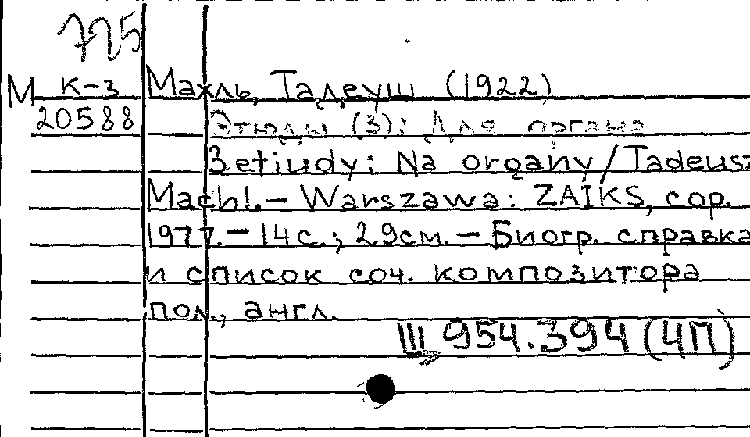 725
М К-3 Махль, Тадеуш (1922)
20588 Этюды (3): Для органа
3 etiudy: Na organy / Tadeusz
Machl. — Warszawa: ZAIKS, cop.
1977. — 14 с.; 29 см. — Биогр. справка
и список соч. композитора
пол., англ.
Ш 954.394 (4П)